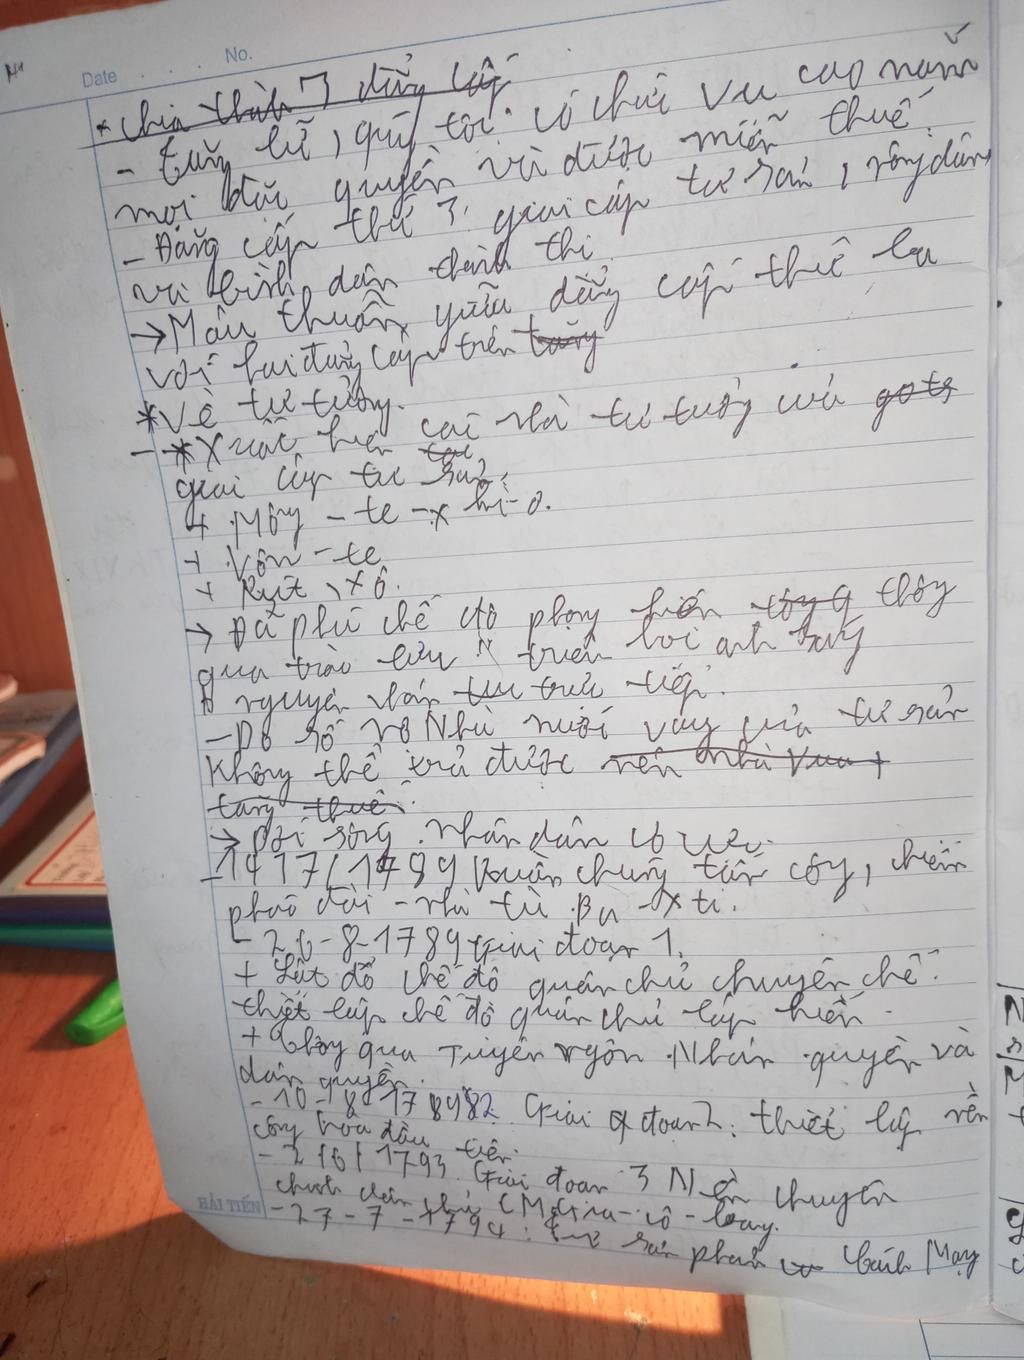 Date . . . . No.
* chia thành 3 đẳng cấp
- Tăng lữ, quý tộc: có chức vụ cao nắm
mọi đặc quyền và được miễn thuế.
- Đẳng cấp thứ 3: giai cấp tư sản, nông dân
và bình dân thành thị
→ Mâu thuẫn giữa đẳng cấp thứ ba
với hai đẳng cấp trên tăng
* Về tư tưởng.
- * Xuất hiện các nhà tư tưởng của
giai cấp tư sản:
+ Mông-te-x ki-ơ.
+ Vôn-te
+ Rút xô.
→ Đả phá chế độ phong kiến thông
qua trào lưu "triết học ánh sáng
nguyên nhân trực tiếp.
- Do số nợ Nhà nước vay của tư sản
không thể trả được nên nhà Vua +
tăng thuế.
→ Đời sống nhân dân cơ cực.
- 14/7/1789 Quần chúng tấn công, chiếm
pháo đài - nhà tù Ba-xti.
- 26-8-1789 Giai đoạn 1.
+ Lật đổ chế độ quân chủ chuyên chế.
thiết lập chế độ quân chủ lập hiến.
+ Thông qua Tuyên ngôn Nhân quyền và
dân quyền.
- 10-8 Giai đoạn 2: thiết lập nền
cộng hòa đầu tiên.
- 2/6/1793. Giai đoạn 3 Nền chuyên
chính dân chủ CM Gia-cô-banh.
- 27-7-1794: tư sản phản Cách Mạng
BÀI TIẾN